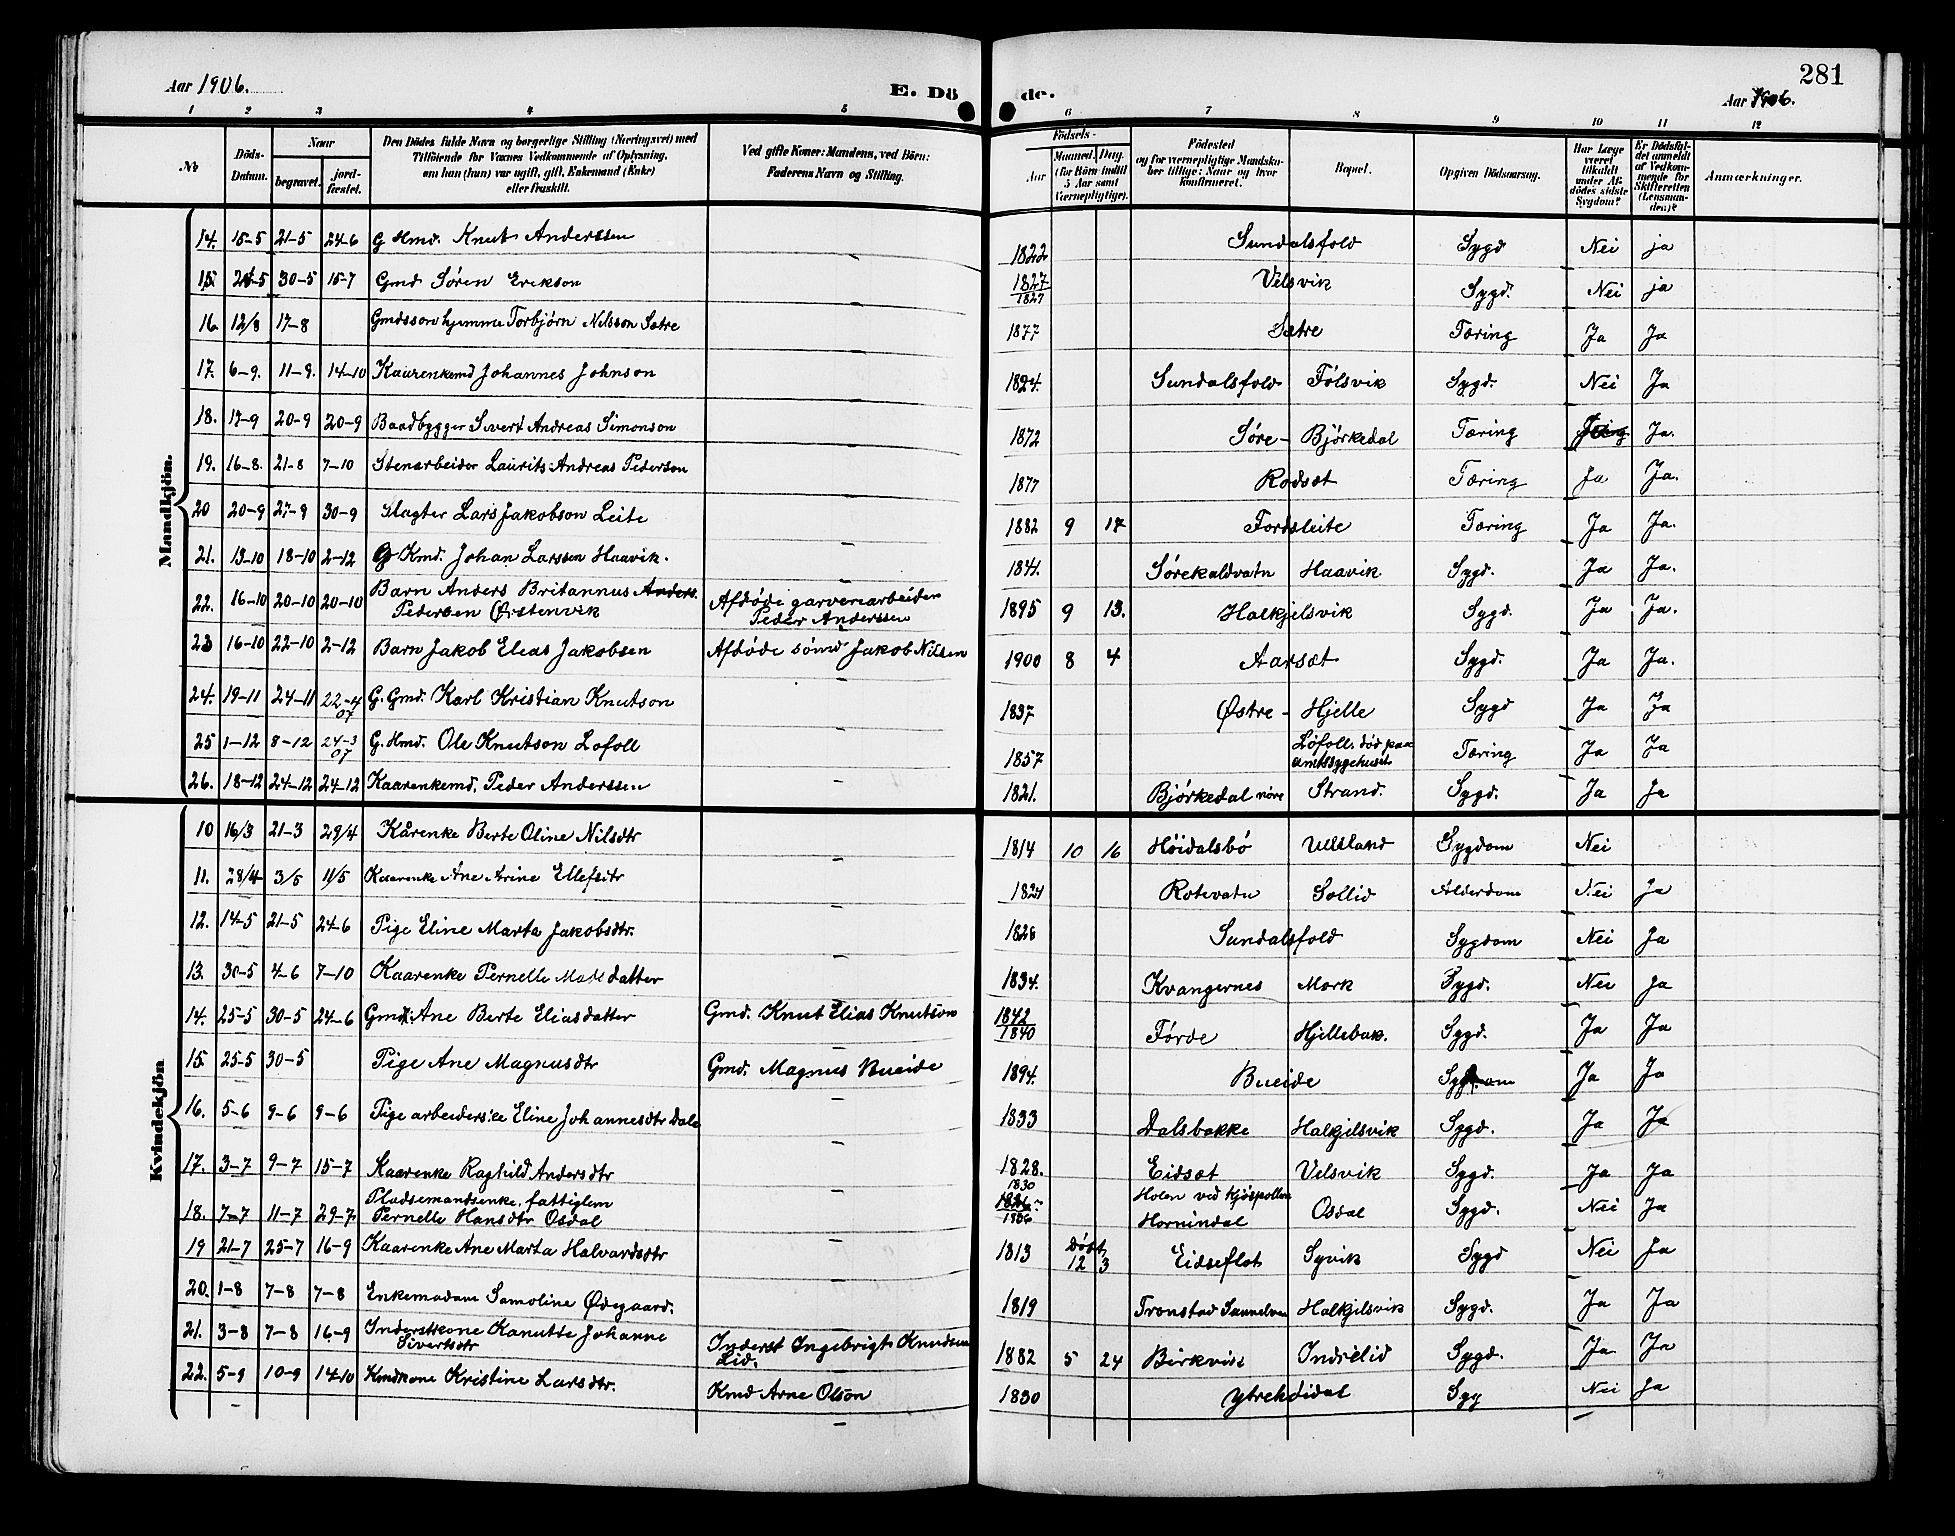 Aar 1906.
E. Döde.
281
Aar 1906.
1 2 3 4 5 6 7 8 9 10 11 12
No
Döds-Datum.
Naar
begravet.
jord-fæstet.
Den Dödes fulde Navn og borgerlige Stilling (Næringsvei) med
Tilföiende for Voxnes Vedkommende af Oplysning,
om han (hun) var ugift, gift, Enkemand (Enke)
eller fraskilt.
Ved gifte Koner: Mandens, ved Börn:
Faderens Navn og Stilling.
Födsels-
Aar
Maaned. Dag.
(for Börn indtil
5 Aar samt
Værnepligtige).
Födested
og for værnepligtige Mandska-
ber tillige: Naar og hvor
konfirmeret.
Bopæl.
Opgiven Dödsaarsag.
Har Læge
været
tilkaldt
under Af-
dödes sidste
Sygdom?
Er Dödsfal-
det anmeldt
af Vedkom-
mende for
Skifteretten
(Lensman-
den)?
Anmærkninger.
Mandkjön.
14. 15-5 21-5 24-6 G Hmd. Knut Anderssen - 1822 Sundalsfold Sygd Nei ja
15. 24-5 30-5 15-7 Gmd Søren Erikson - 1827 1827 Velsvik Sygd. Nei ja
16. 12/8 17-8 Gmdsson hjemme Torbjørn Nilsson Sætre - 1877 Sætre Tæring Ja Ja
17. 6-9. 11-9. 14-10 Kaarenkemd Johannes Johnson - 1824. Sundalsfold Følsvik Sygd. Nei Ja
18. 17-9 20-9 20-9 Baadbygger Sivert Andreas Simonson - 1872 Søre- Bjørkedal Tæring Ja.
19. 16-8. 21-8 7-10 Stenarbeider Laurits Andreas Pederson - 1877 Rodsæt Tæring Ja Ja.
20 20-9 27-9 30-9 Slagter Lars Jakobson Leite - 1882 9 17 Fordsleite Tæring Ja Ja.
21. 13-10 18-10 2-12 G Kmd. Johan Larssen Haavik. - 1841. Sørekaldvatn Haavik Sygd. Ja Ja.
22. 16-10 20-10 20-10 Barn Anders Britannus Anders.
Pedersen Ørstenvik Afdøde garveriarbeider
Peder Anderssen 1895 9 13. Halkjelsvik Sygd. Ja Ja.
23 16-10 22-10 2-12 Barn Jakob Elias Jakobsen Afdøde sømd Jakob Nilsen 1900 8 4 Aarsæt Sygd. Ja Ja.
24. 19-11 24-11 22-4 07 G. Gmd. Karl Kristian Knutson - 1837 Østre- Hjelle Sygd Ja Ja
25 1-12 8-12 24-3 07 G. Hmd. Ole Knutson Lofoll - 1857 Løfoll. død paa
amtssygehuset Tæring Ja Ja
26. 18-12 24-12 24-12 Kaarenkemd. Peder Anderssen - 1821. Bjørkedal nøre Strand. Sygd. Ja Ja
Kvindekjön
10 16/3 21-3 29/4 Kårenke Berte Oline Nilsdtr - 1814 10 16 Høidalsbø Ullaland Sygdom Nei
11. 28/4 3/5 11/5 Kaarenke Ane Arine Ellefsdtr - 1821 Rotevatn Sollid Alderdom Nei Ja
12. 14-5 21-5 24-6 Pige Eline Marta Jakobsdtr. - 1826 Sundalsfold Sygdom Nei Ja
13. 30-5 4-6 7-10 Kaarenke Pernelle Mads datter - 1834. Kvangernes Mork Sygd. Nei Ja
14. 25-5 30-5 24-6 Gmdk. Ane Berte Eliasdatter Gmd. Knut Elias Knutson 1842 1840 Førde Hjellebak. Sygd. Ja Ja
15. 25-5 30-5 Pige Ane Magnusdtr Gmd. Magnus Bueide 1894. Bueide Sygdom Ja Ja
16. 5-6 9-6 9-6 Pige arbeiderske Eline Johannesdtr Dale - 1833 Dalsbakke Halkjelsvik Sygd. Ja Ja
17. 3-7 9-7 15-7 Kaarenke Raghild Andersdtr - 1828. Eidsæt Velsvik Sygd. Ja Ja
18. 7-7 11-7 29-7 Pladsemandsenke, fattiglem
Pernelle Hansdtr Osdal 1830 1836 Holen ved Kjøspollen
Hornindal Osdal Sygd. Nei Ja
19 21-7 25-7 16-9 Kaarenke Ane Marta Halvardsdtr 1813 Døbt 12 3 Eidseflot Syvik Sygd Nei Ja
20. 1-8 7-8 7-8 Enkemadam Samoline Ødegaard. 1819 Tronstad Sunnelven Halkjelsvik Sygd. Ja Ja
21. 3-8 7-8 16-9 Inderstkone Kanutte Johanne
Sivertsdtr Inderst Ingebrigt Knudsen
Lid. 1882 5 24 Birkvist Indrelid Sygd. Ja Ja
22. 5-9 10-9 14-10 Kmdkone Kristine Larsdtr. Kmd Arne Olson 1830 Ytrehdidal Syg Nei Ja